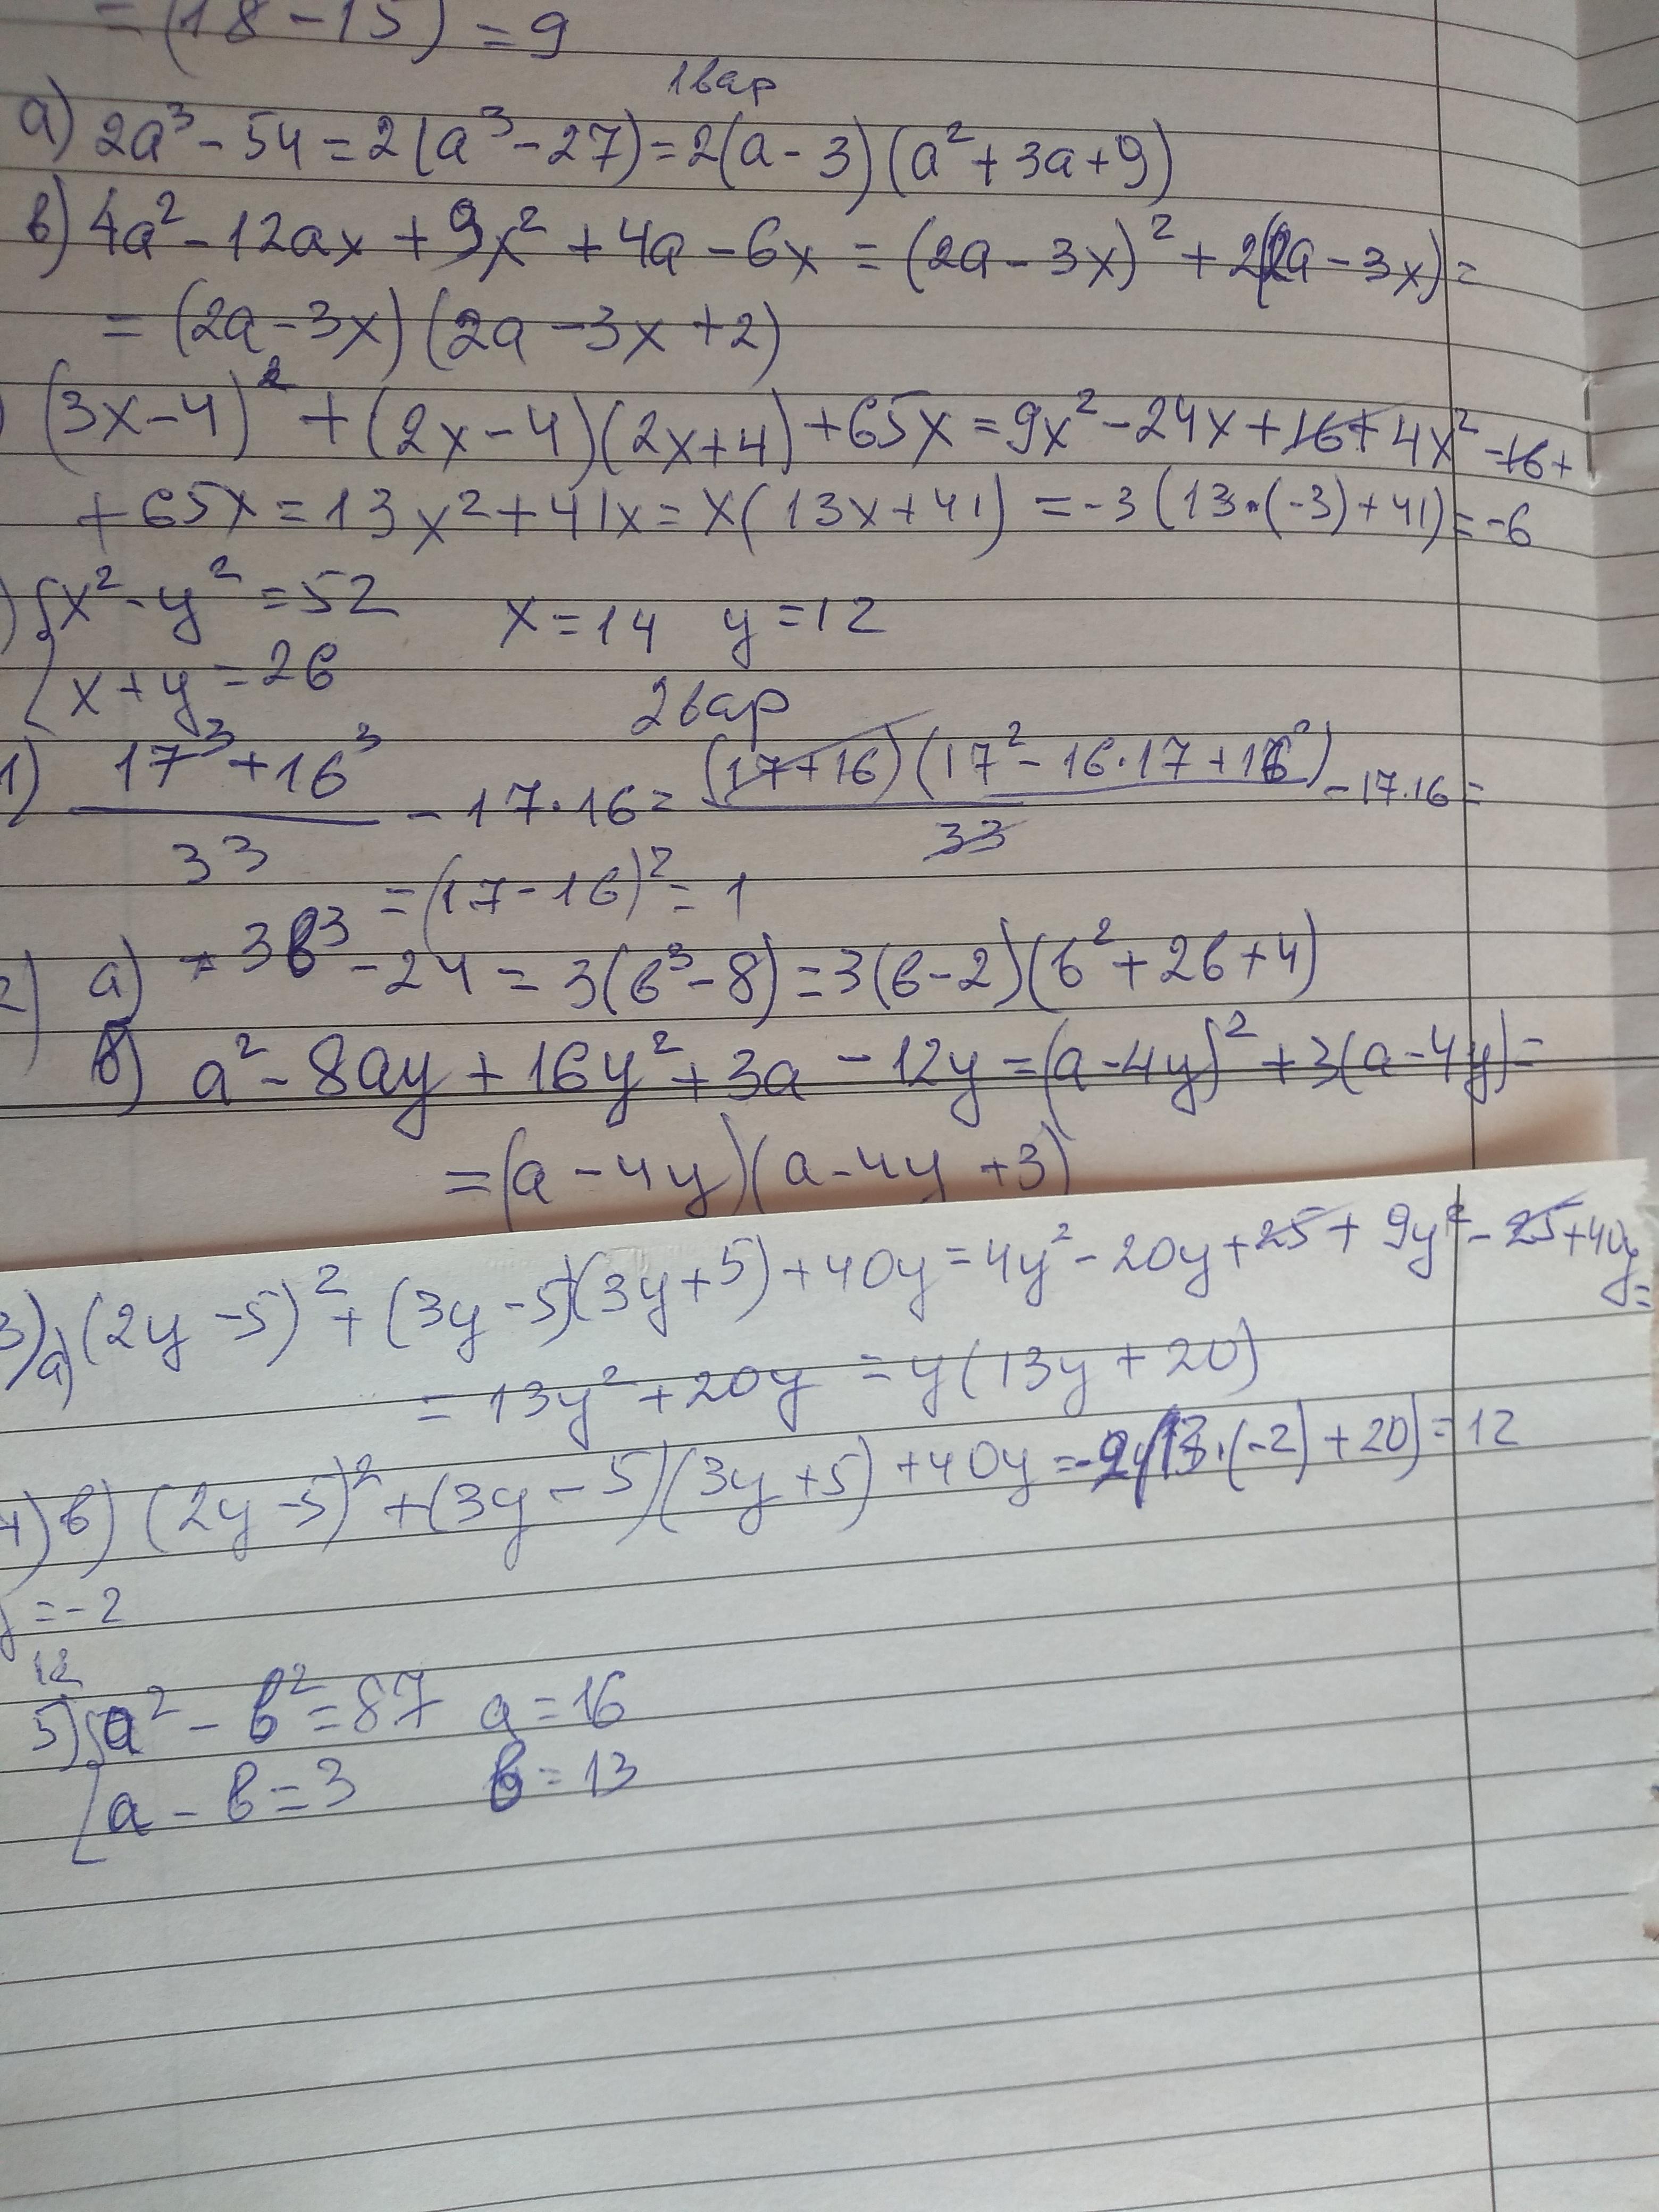 = (18 - 15) = 9
1вар
а) 2a³ - 54 = 2(a³ - 27) = 2(a - 3)(a² + 3a + 9)
в) 4a² - 12ax + 9x² + 4a - 6x = (2a - 3x)² + 2(2a - 3x) =
= (2a - 3x)(2a - 3x + 2)
) (3x - 4)² + (2x - 4)(2x + 4) + 65x = 9x² - 24x + 16 + 4x² - 16 +
+ 65x = 13x² + 41x = x(13x + 41) = -3(13·(-3) + 41) = -6
) { x² - y² = 52 x = 14 y = 12
x + y = 26
2вар
1) (17³ + 16³)/33 - 17·16 = (17+16)(17² - 16·17 + 16²)/33 - 17·16 =
= (17 - 16)² = 1
2) а) 3в³ - 24 = 3(в³ - 8) = 3(в - 2)(в² + 2в + 4)
в) a² - 8ay + 16y² + 3a - 12y = (a - 4y)² + 3(a - 4y) =
= (a - 4y)(a - 4y + 3)
3) а) (2y - 5)² + (3y - 5)(3y + 5) + 40y = 4y² - 20y + 25 + 9y² - 25 + 40y =
= 13y² + 20y = y(13y + 20)
4) в) (2y - 5)² + (3y - 5)(3y + 5) + 40y = -2(13·(-2) + 20) = 12
y = -2
12
5) { a² - в² = 87 a = 16
a - в = 3 в = 13